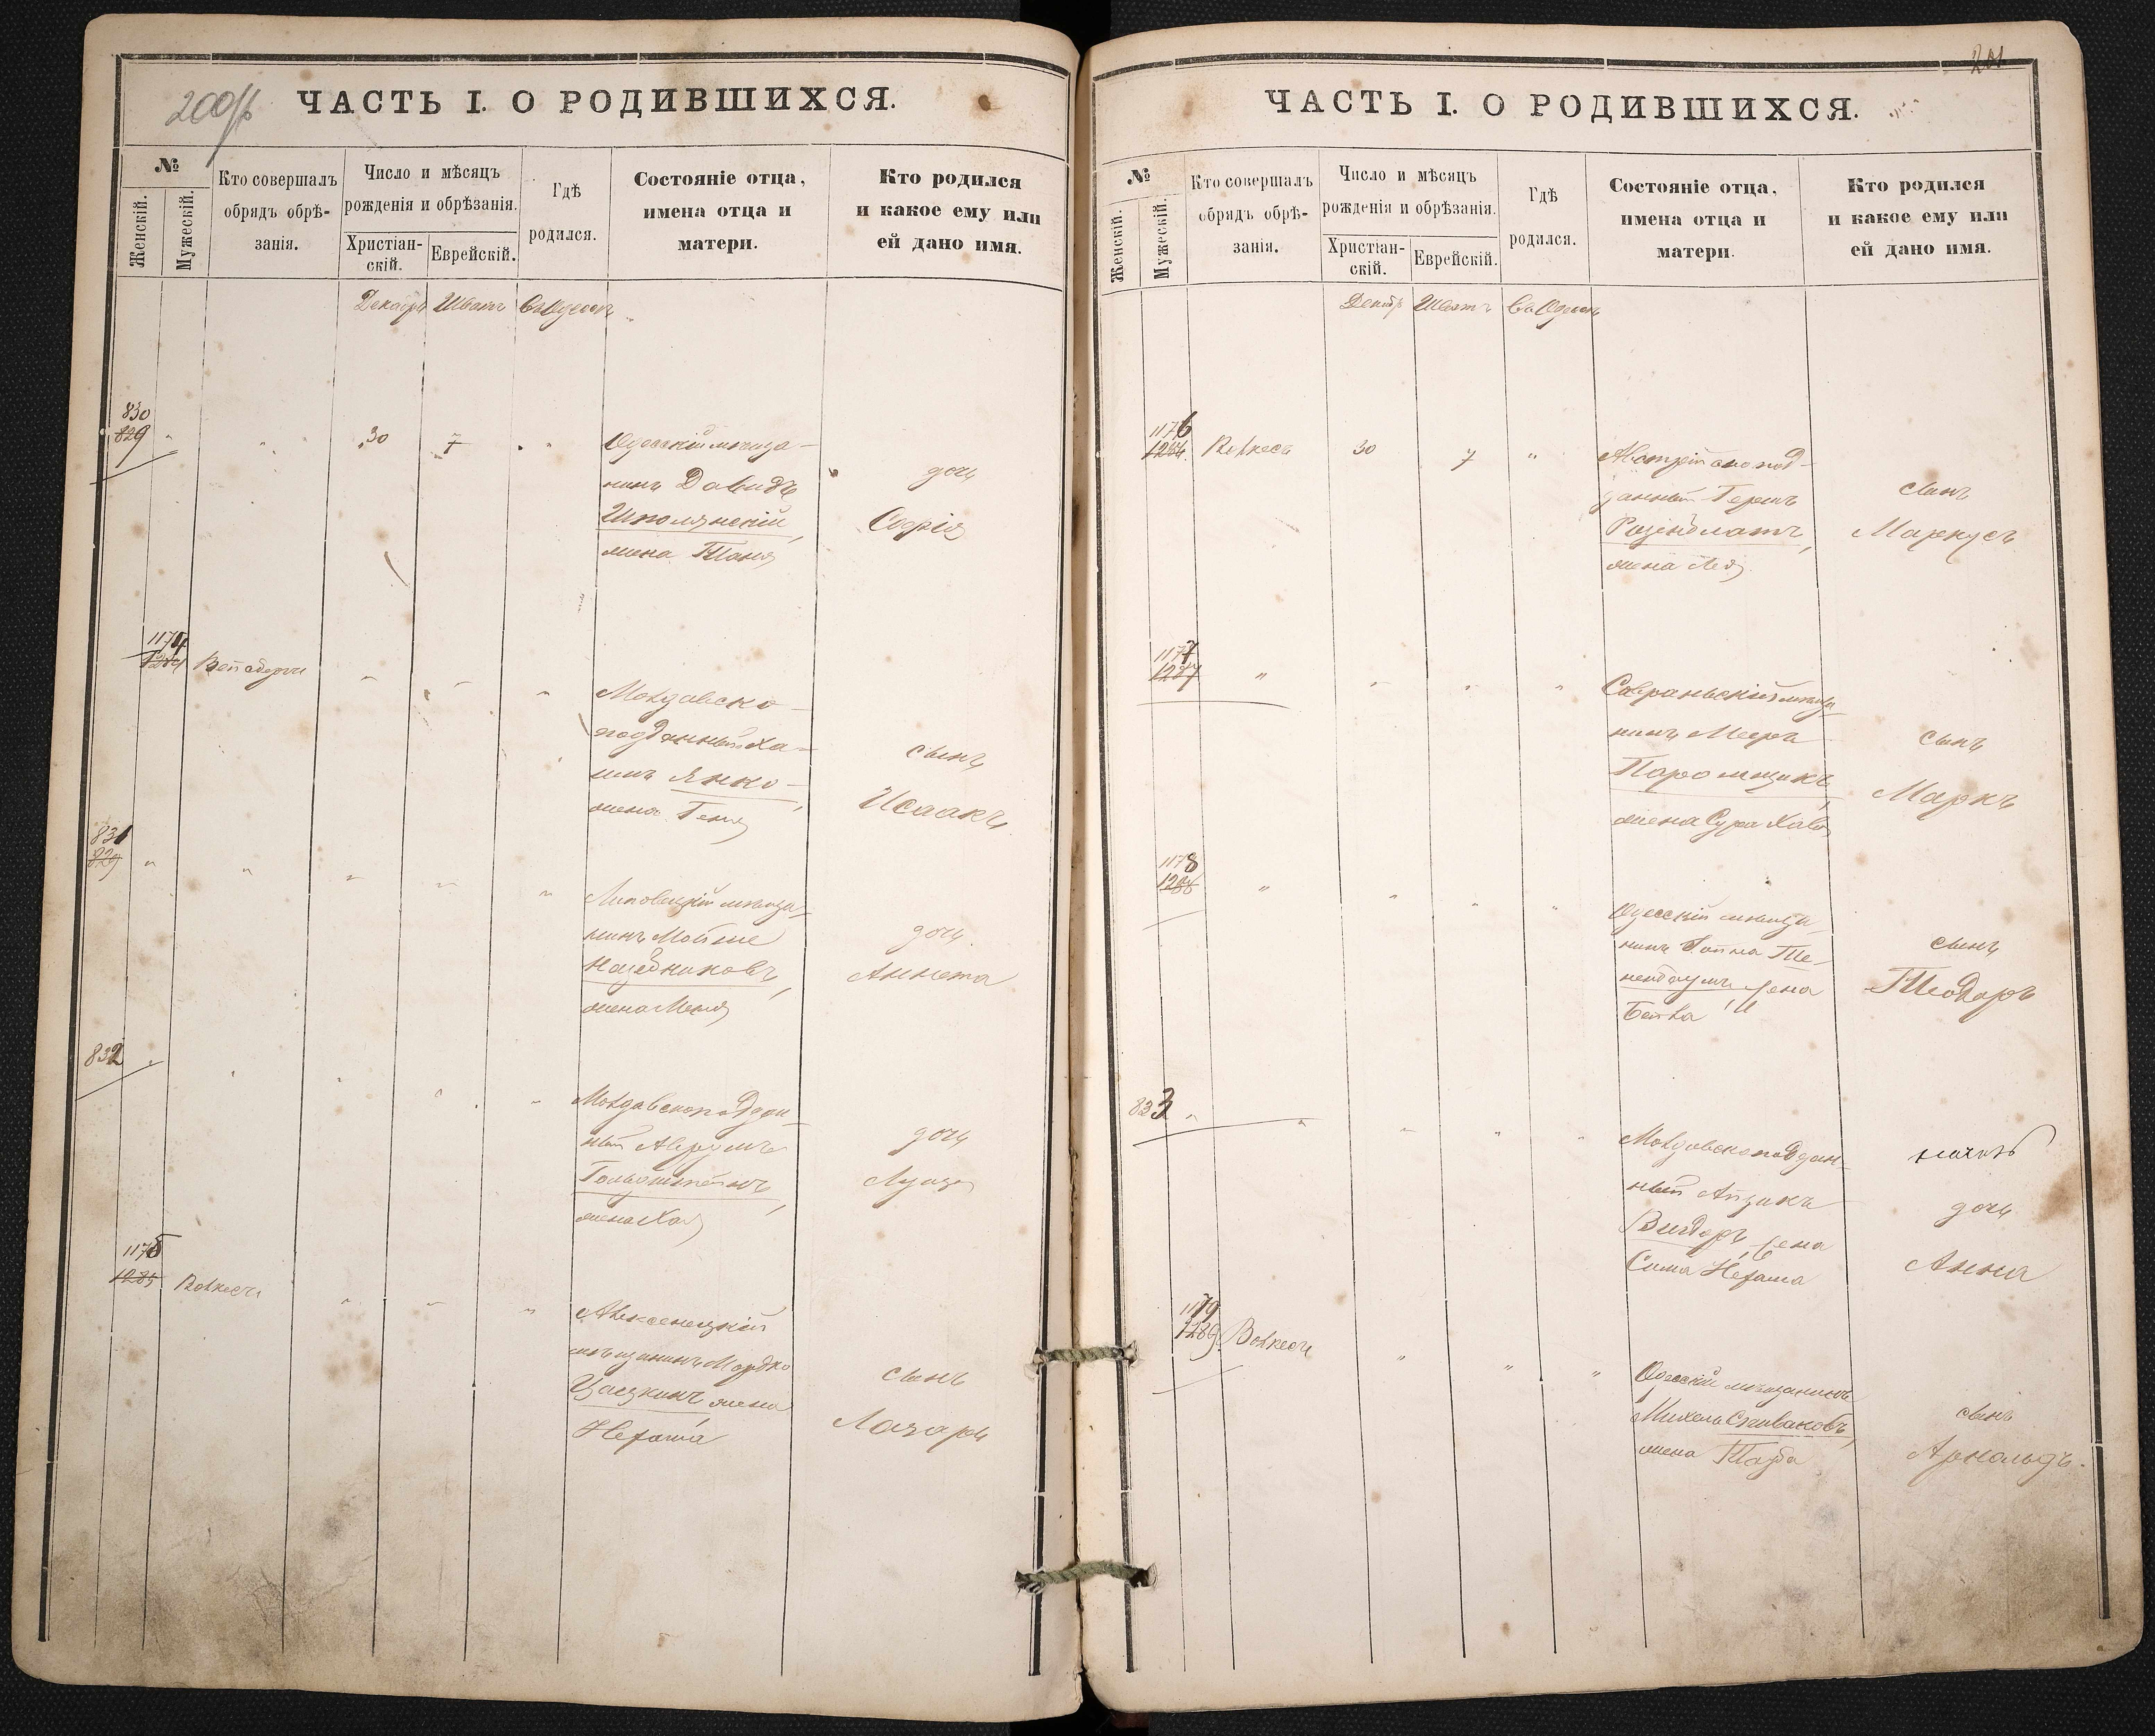 200об
ЧАСТЬ I. О РОДИВШИХСЯ.
№
Женскій.
Мужескій.
Кто совершалъ
обрядъ обрѣ-
занія.
Число и мѣсяцъ
рожденія и обрѣзанія.
Христіан-
скій.
Еврейскій.
Гдѣ
родился.
Состояніе отца,
имена отца и
матери.
Кто родился
и какое ему или
ей дано имя.
Декабрь Шватъ Въ Одессѣ
830
829 " " " 30 7 " "
Одесскій мѣща-
нинъ Давидъ
Шполянскій,
жена Таня
дочь
Софія
1174
1284
" " "
Молдавско-
подданный Ха-
имъ Янко-
жена Геня
сынъ
Исаакъ
831
829 " " " " "
Липовецкій мѣща-
нинъ Мойше
жена Меня
дочь
Аннета
832 " " " " "
Молдавскоподдан-
ный Аврумъ
Гольдштейнъ,
жена Хая
дочь
Луиза
1175
1285 Волкесъ " " "
мѣщанинъ Мордко
жена
Нехама
сынъ
Лазарь
201
ЧАСТЬ I. О РОДИВШИХСЯ.
№
Женскій.
Мужескій.
Кто совершалъ
обрядъ обрѣ-
занія.
Число и мѣсяцъ
рожденія и обрѣзанія.
Христіан-
скій.
Еврейскій.
Гдѣ
родился.
Состояніе отца,
имена отца и
матери.
Кто родился
и какое ему или
ей дано имя.
Декабр Шватъ Въ Одессѣ
1176
Волкесъ 30 7 "
Австрійскопод-
данный Гершъ
Розенблатъ,
жена Лея
сынъ
Маркусъ
1177
1287 " " " "
Савраньскій мѣща-
нинъ Мееръ
жена Сура Хава
сынъ
Маркъ
1178
1288 " " " "
Одесскій мѣща-
нинъ
жена
Бейла
сынъ
Теодоръ
833 " " " " "
Молдавскоподдан-
ный Айзикъ
жена
Сима Нехама
дочь
Анна
1179
1289 Волкесъ " " "
Одесскій мѣщанинъ
Михель Спиваковъ,
жена Тауба
сынъ
Арнольдъ.